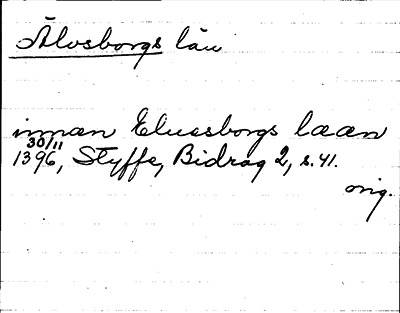 Älvsborgs län
innan Eluessborgs læan
30/11
1396, Styffe, Bidrag 2, s. 41.
orig.